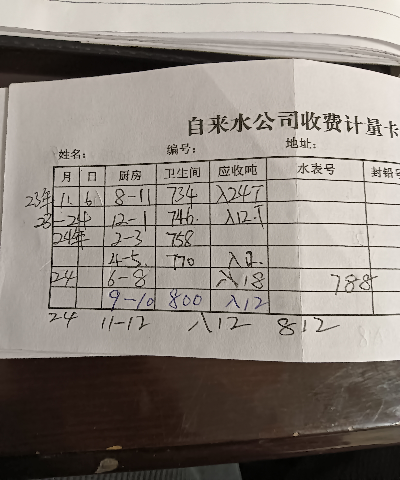 自来水公司收费计量卡
姓名: 编号: 地址:
月 日 厨房 卫生间 应收吨 水表号 封铅号
23年 11. 6 8-11 734 入24T
23-24 12-1 746. 入12.T
24年 2-3 758
4-5. 770 入12.
24 6-8 入18 788
9-10 800 入12
24 11-12 入12 812